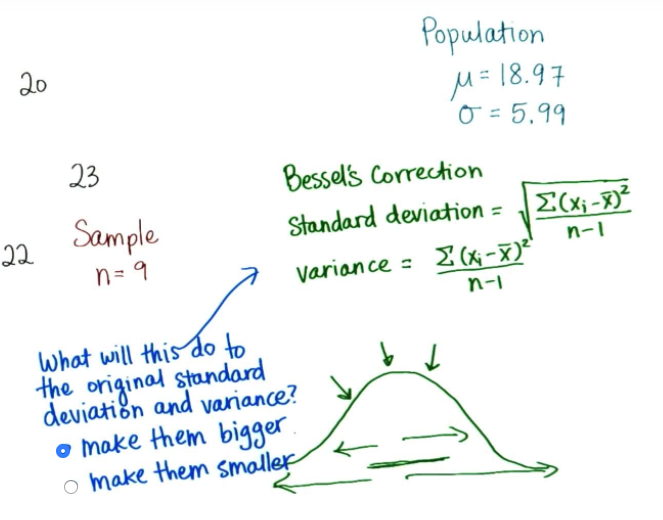 Population
μ = 18.97
σ = 5.99
20
23
22
Sample
n = 9
Bessel's Correction
Standard deviation = √(Σ(xᵢ - x̄)² / n-1)
Variance = Σ(xᵢ - x̄)² / n-1
What will this do to
the original standard
deviation and variance?
make them bigger
make them smaller